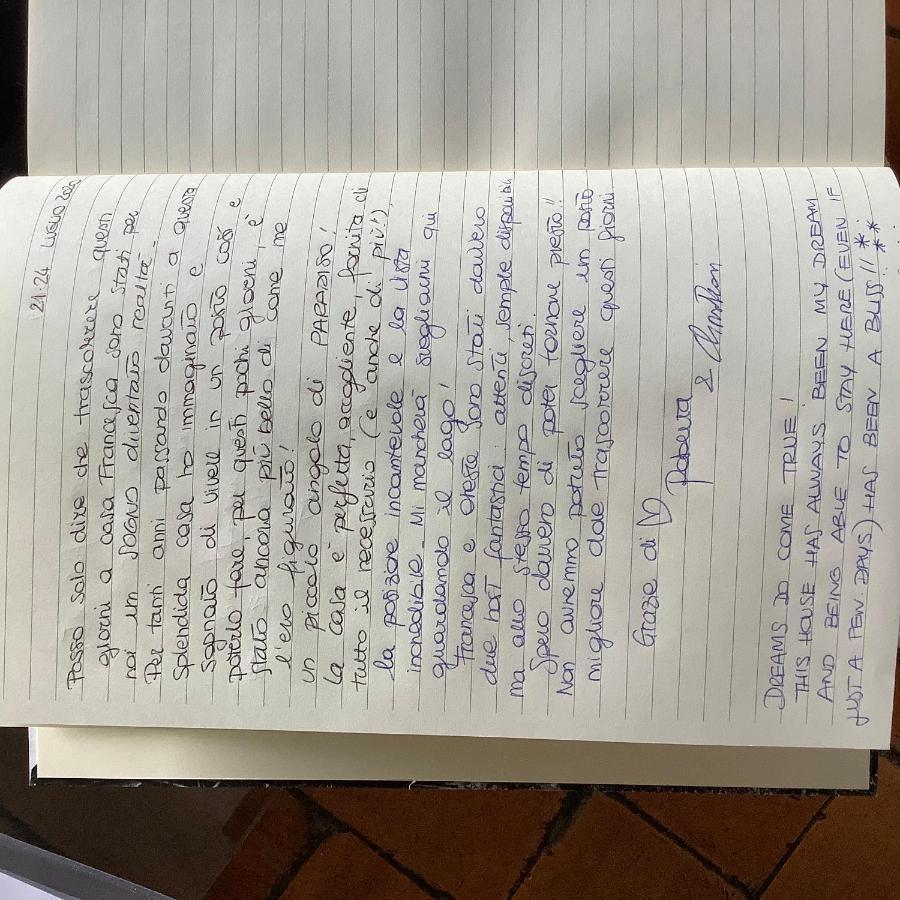 21-24 LUGLIO 2020
Posso solo dire che trascorrere questi
giorni a casa Francesca sono stati per
noi un SOGNO diventato realtà.
Per tanti anni passando davanti a questa
splendida casa ho immaginato e
sognato di vivere in un posto così e
poterlo fare, per questi pochi giorni, è
stato ancora più bello di come me
l'ero figurato!
un piccolo angolo di PARADISO!
La casa è perfetta, accogliente, fornita di
tutto il necessario (e anche di più!),
la posizione incantevole e la vista
incredibile. Mi mancherà svegliarmi qui
guardando il lago!
Francesca e Oreste sono stati davvero
due host fantastici: attenti, sempre disponibili
ma allo stesso tempo discreti.
Spero davvero di poter tornare presto!!
Non avremmo potuto scegliere un posto
migliore dove trascorrere questi giorni.
Grazie di ♡
Roberta
&
DREAMS DO COME TRUE!
THIS HOUSE HAS ALWAYS BEEN MY DREAM
AND BEING ABLE TO STAY HERE (EVEN IF
JUST A FEW DAYS) HAS BEEN A BLISS!! ***